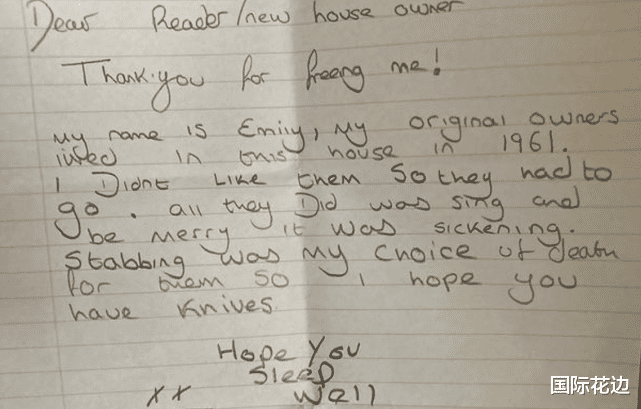 Dear Reader/new house owner
Thank you for freeing me!
My name is Emily, my original owners
lived in this house in 1961.
I Didnt Like them So they had to
go. all they Did was sing and
be merry it was sickening.
Stabbing was my choice of death
for them so I hope you
have Knives
Hope You
Sleep
xx Well
国际花边